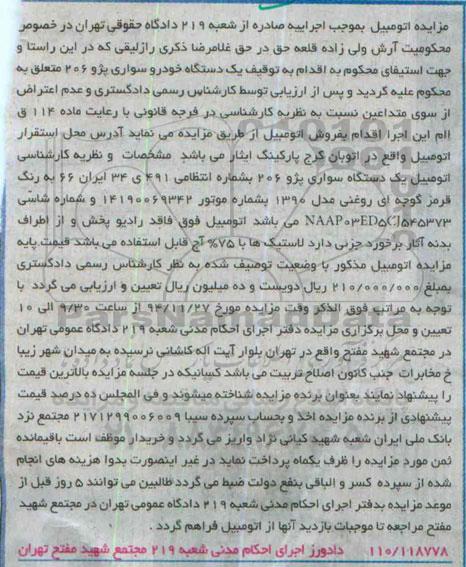 مزایده اتومبیل بموجب اجراییه صادره از شعبه ۲۱۹ دادگاه حقوقی تهران در خصوص
محکومیت آرش ولی زاده قلعه حق در حق غلامرضا ذکری رازلیقی که در این راستا و
جهت استیفای محکوم به اقدام به توقیف یک دستگاه خودرو سواری پژو ۲۰۶ متعلق به
محکوم علیه گردید و پس از ارزیابی توسط کارشناس رسمی دادگستری و عدم اعتراض
از سوی متداعین نسبت به نظریه کارشناسی در فرجه قانونی با رعایت ماده ۱۱۴ ق
اام این اجرا اقدام بفروش اتومبیل از طریق مزایده می نماید آدرس محل استقرار
اتومبیل واقع در اتوبان کرج پارکینگ ایثار می باشد مشخصات و نظریه کارشناسی
اتومبیل یک دستگاه سواری پژو ۲۰۶ بشماره انتظامی ۴۹۱ ی ۳۴ ایران ۶۶ به رنگ
قرمز گوجه ای روغنی مدل ۱۳۹۰ بشماره موتور ۱۴۱۹۰۰۶۹۳۴۲ و شماره شاسی
NAAP۰۳ED۵CJ۵۴۵۳۷۳ می باشد اتومبیل فوق فاقد رادیو پخش و از اطراف
بدنه آثار برخورد جزئی دارد لاستیک ها با ۷۵% آج قابل استفاده می باشد قیمت پایه
مزایده اتومبیل مذکور با وضعیت توصیف شده به نظر کارشناس رسمی دادگستری
بمبلغ ۲۱۰/۰۰۰/۰۰۰ ریال دویست و ده میلیون ریال تعیین و ارزیابی می گردد با
توجه به مراتب فوق الذکر وقت مزایده مورخ ۹۴/۱۱/۲۷ از ساعت ۹/۳۰ الی ۱۰
تعیین و محل برگزاری مزایده دفتر اجرای احکام مدنی شعبه ۲۱۹ دادگاه عمومی تهران
در مجتمع شهید مفتح واقع در تهران بلوار آیت اله کاشانی نرسیده به میدان شهر زیبا
خ مخابرات جنب کانون اصلاح تربیت می باشد کسانیکه در جلسه مزایده بالاترین قیمت
را پیشنهاد نمایند بعنوان برنده مزایده شناخته میشوند و فی المجلس ده درصد قیمت
پیشنهادی از برنده مزایده اخذ و بحساب سپرده سیبا ۲۱۷۱۲۹۹۰۰۶۰۰۹ مجتمع نزد
بانک ملی ایران شعبه شهید کیانی نژاد واریز می گردد و خریدار موظف است باقیمانده
ثمن مورد مزایده را ظرف یکماه پرداخت نماید در غیر اینصورت بدوا هزینه های انجام
شده از سپرده کسر و الباقی بنفع دولت ضبط می گردد طالبین می توانند ۵ روز قبل از
موعد مزایده بدفتر اجرای احکام مدنی شعبه ۲۱۹ دادگاه عمومی تهران در مجتمع شهید
مفتح مراجعه تا موجبات بازدید آنها از اتومبیل فراهم گردد .
۱۱۰/۱۱۸۷۷۸ دادورز اجرای احکام مدنی شعبه ۲۱۹ مجتمع شهید مفتح تهران